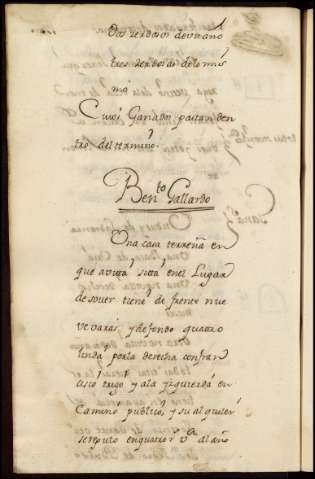 Dos zerdosos de vn año
tres zerdosas de lo mis
mo
Cuios Ganados pastan den
tro del termino
Ben.to Gallardo
Vna casa terrena en
que avita sita en el Lugar
de sover tiene de frente nue
ve varas y de fondo quatro
linda por la derecha con fran
cisco trigo y a la yzquierda en
Camino publico, y su alquiler
se reputo en quatro r.s v.n al año